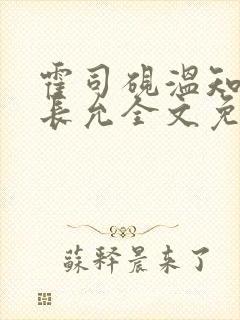 霍司砚温知
长允全文免
蘇释晨来了